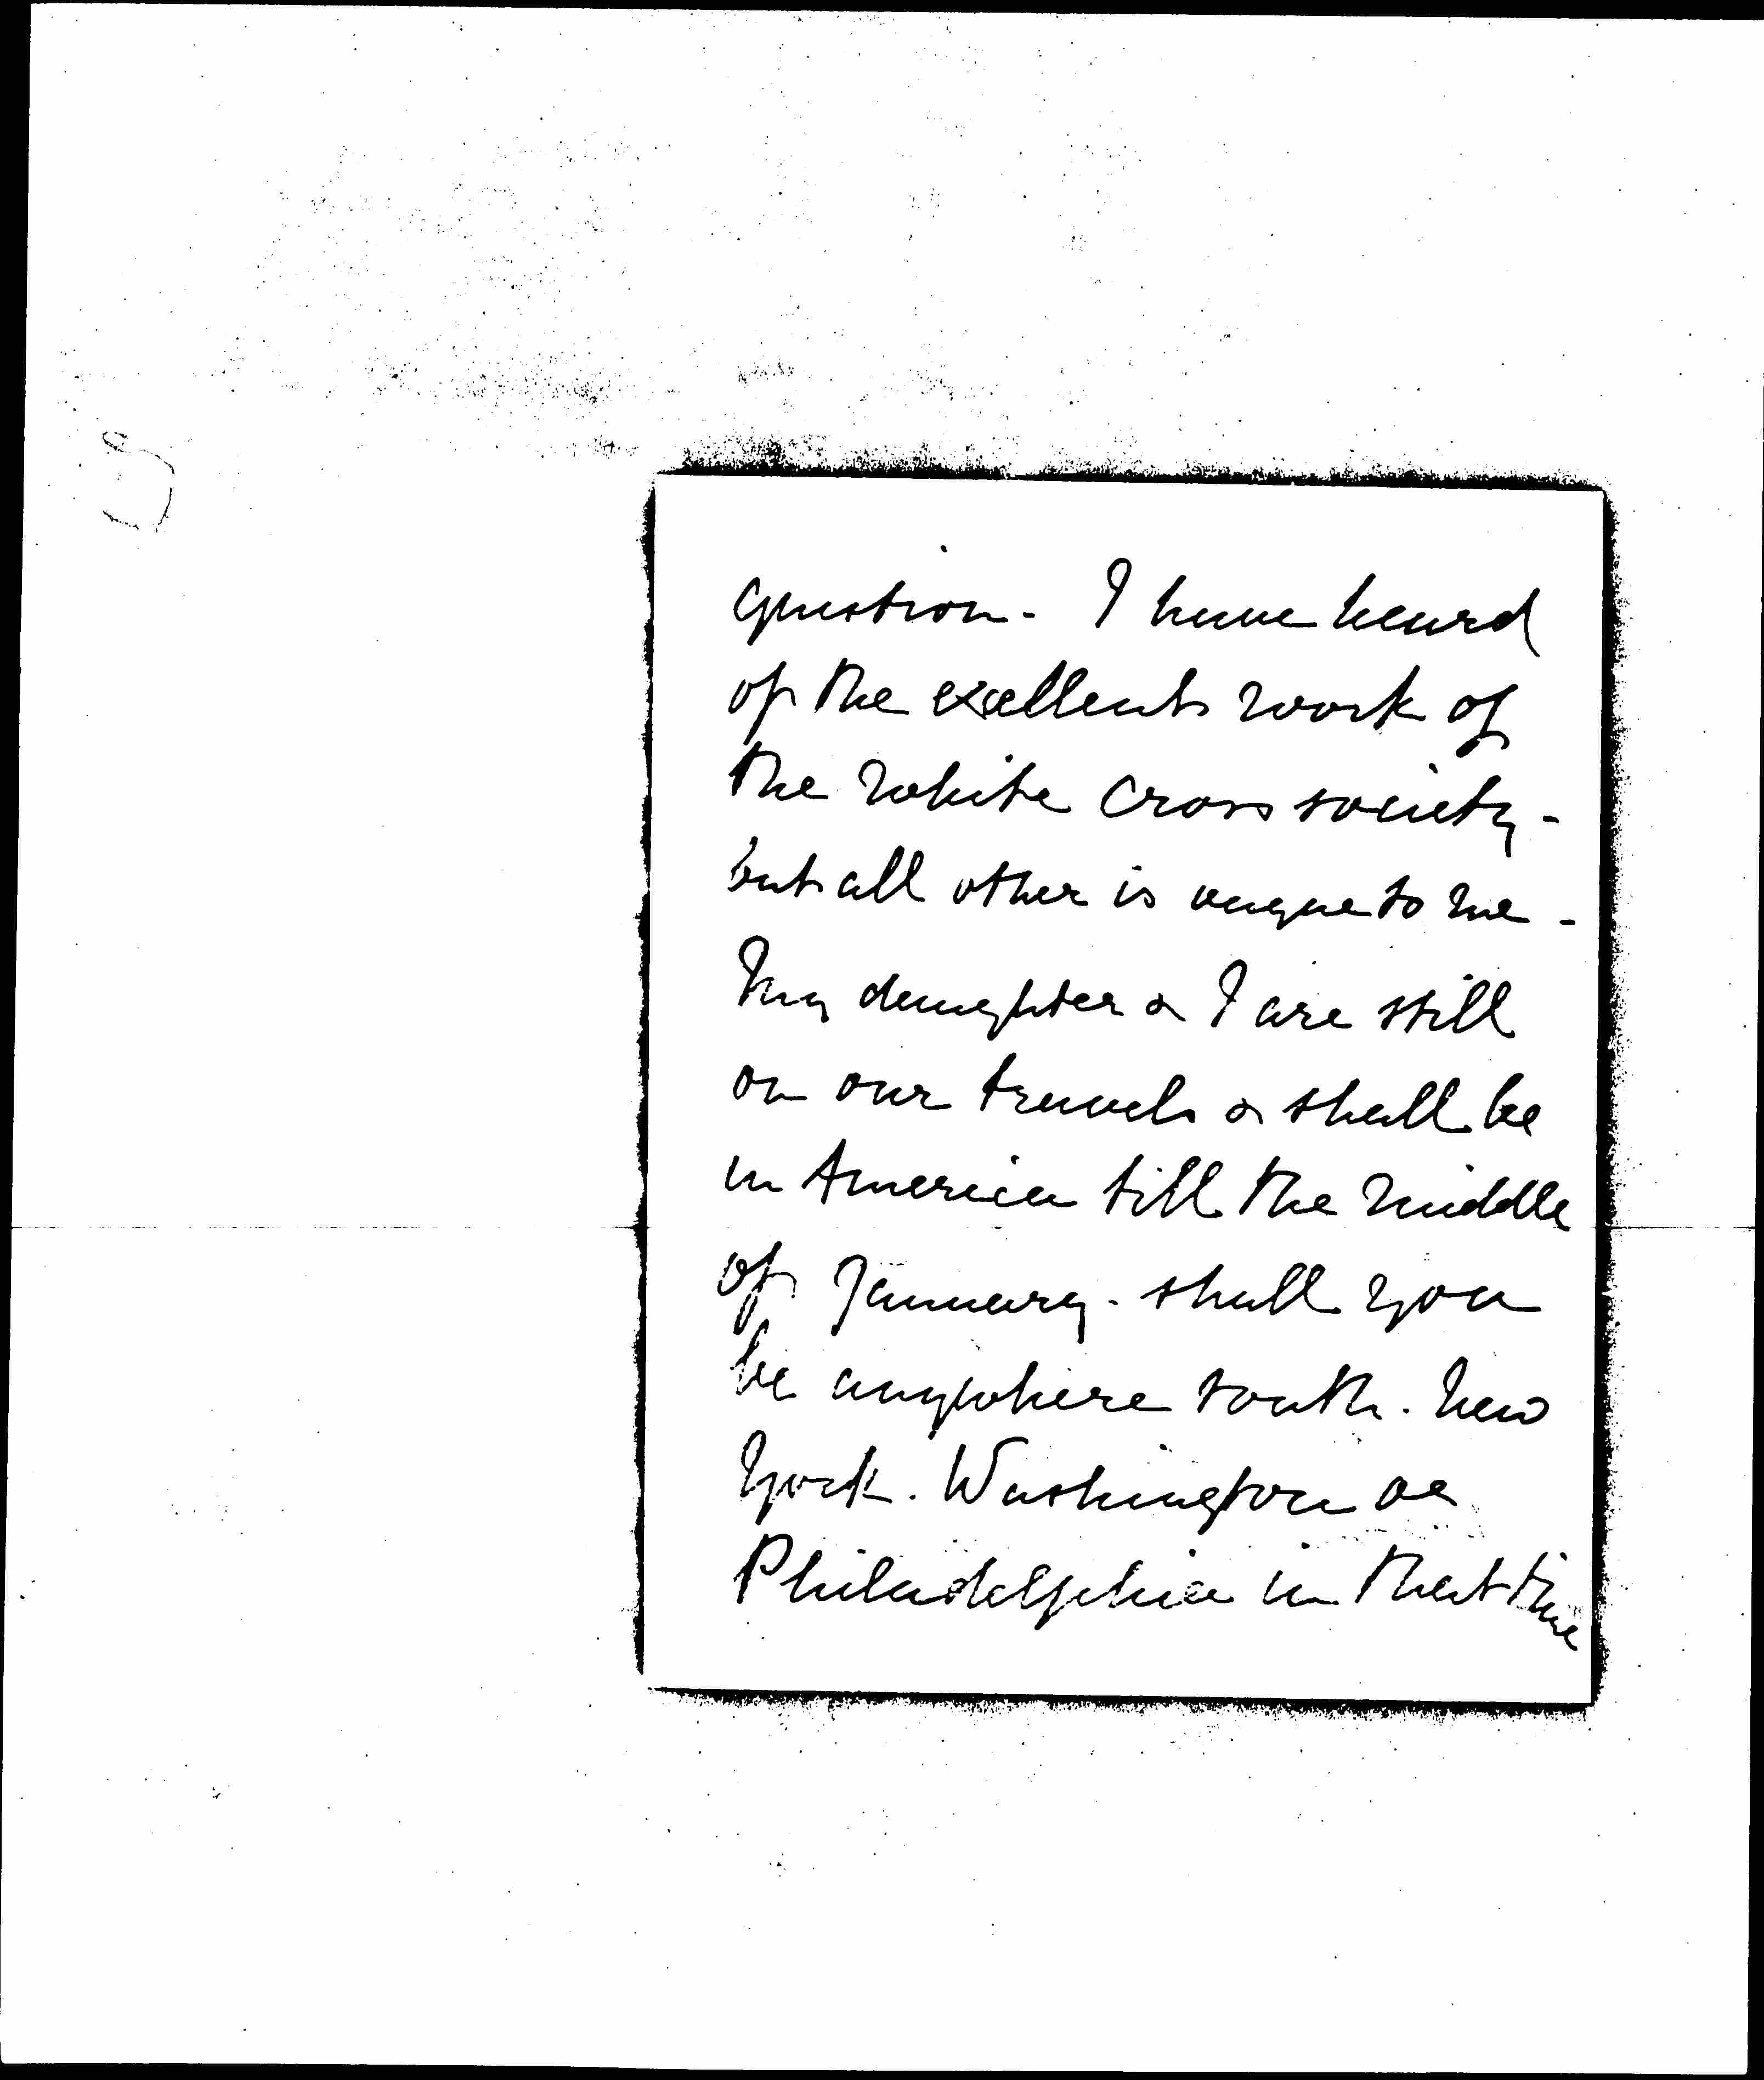 question - I have heard
of the excellent work of
the White Cross society -
but all other is vague to me -
My daughter & I are still
on our travels & shall be
in America till the middle
of January - shall you
be anywhere south. New
York. Washington or
Philadelphia in that time